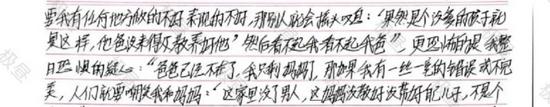 要我有任何地方做的不好表现的不好,那别人就会摇头叹息:“果然是个没爸的孩子就
是这样,他爸没来得及教养好他”然后看不起我看不起我爸”,更恐怖的是我整
日恐惧的疑心:“爸爸已经不在了,我只剩妈妈,那如果我有一丝一毫的错误或不完
美,人们就要嘲笑我和妈妈:‘这家里没了男人,这妈妈没教好没养好他儿子,不是个